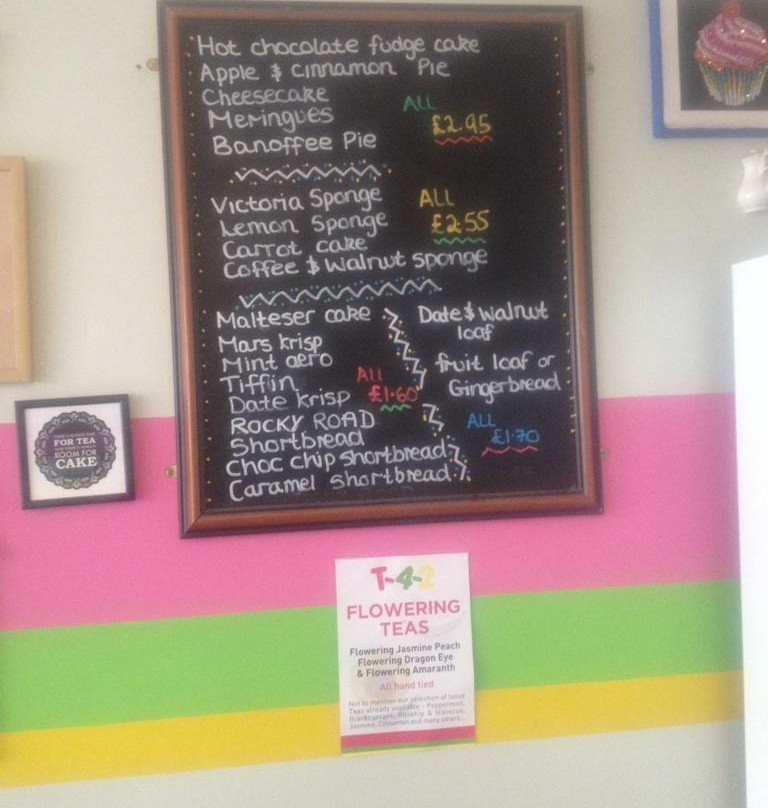 Hot chocolate fudge cake
Apple & cinnamon Pie
Cheesecake
Meringues
Banoffee Pie
ALL
£2.95
Victoria Sponge
Lemon Sponge
Carrot cake
Coffee & Walnut sponge
ALL
£2.55
Malteser cake
Mars krisp
Mint aero
Tiffin
Date krisp
ROCKY ROAD
Shortbread
Choc chip shortbread
Caramel shortbread
ALL
£1.60
Date & walnut
loaf
fruit loaf or
Gingerbread
ALL
£1.70
FOR TEA
ROOM FOR
CAKE
T-4-2
FLOWERING
TEAS
Flowering Jasmine Peach
Flowering Dragon Eye
& Flowering Amaranth
All hand tied
Not to mention our selection of loose
Teas already available - Peppermint,
Blackcurrant, Rosehip & Hibiscus,
Jasmine, Cinnamon and many others...